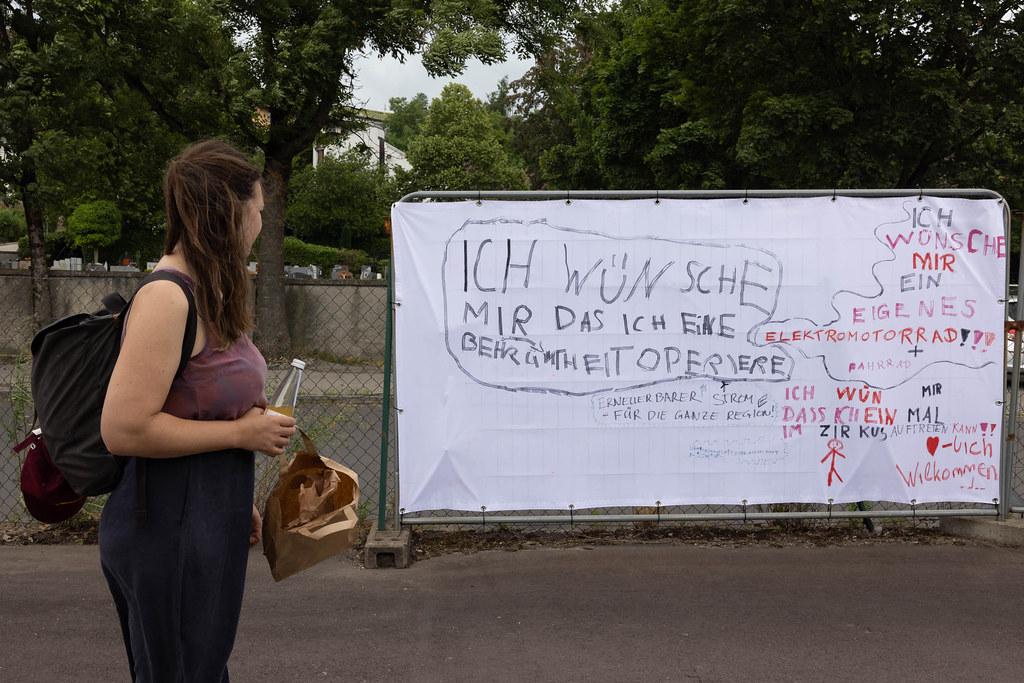 ICH WÜNSCHE
MIR DAS ICH EINE
BEHRÜMTHEIT OPERIERE
ERNEUERBARER STROM
- FÜR DIE GANZE REGION!
ICH
WÜNSCHE
MIR
EIN
EIGENES
ELEKTROMOTORRAD!!!!
+
FAHRRAD
ICH WÜN MIR
DASS ICH EIN MAL
IM ZIRKUS AUFTRETEN KANN!!
♥-lich
Wilkommen